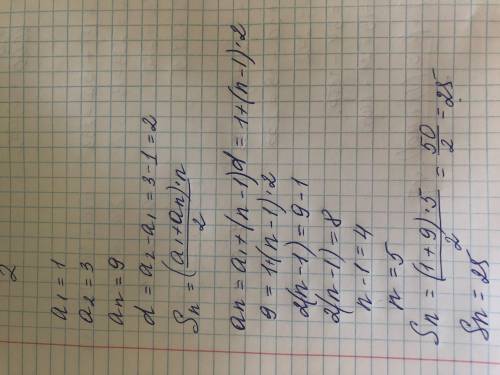 2
a₁ = 1
a₂ = 3
aₙ = 9
d = a₂ - a₁ = 3 - 1 = 2
Sₙ = (a₁ + aₙ) · n / 2
aₙ = a₁ + (n - 1)d = 1 + (n - 1) · 2
9 = 1 + (n - 1) · 2
2(n - 1) = 9 - 1
2(n - 1) = 8
n - 1 = 4
n = 5
Sₙ = (1 + 9) · 5 / 2 = 50 / 2 = 25
Sₙ = 25